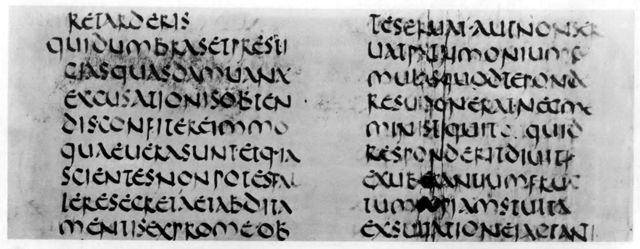 RETARDERIS
QUIDUMBRASETPRESTI
GIASQUASDAMUANA
EXCUSATIONISOBTEN
DISCONFITEREIMMO
QUAEUERASUNTETQUIA
SCIENTESNONPOTESFAL
LERESECRETAETABDITA
MENTISEXPROMEOB
TESERUAT·AUTNONSER
UATPATRIMONIUM
QUODTEPONDE
RESUOONERATNECME
MINISTI QUID
RESPONDERITDIUITI
EXUBERANTIUMFRUC
TUM STULTA
EXSULTATIONEIACTANT